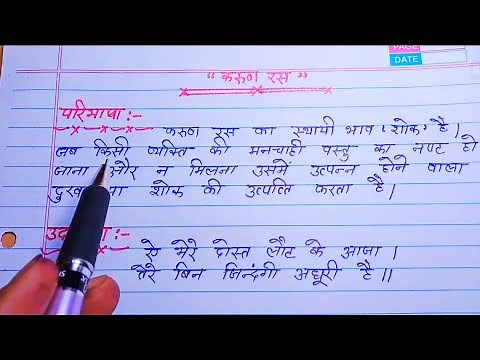 PAGE
DATE
“करुण रस”
परिभाषा:-
करुण रस का स्थायी भाव 'शोक' है।
जब किसी व्यक्ति की मनचाही वस्तु का नष्ट हो
जाना और न मिलना उसमें उत्पन्न होने वाला
शोक की उत्पत्ति करता है।
ऐ मेरे दोस्त लौट के आजा।
तेरे बिन जिन्दगी अधूरी है॥